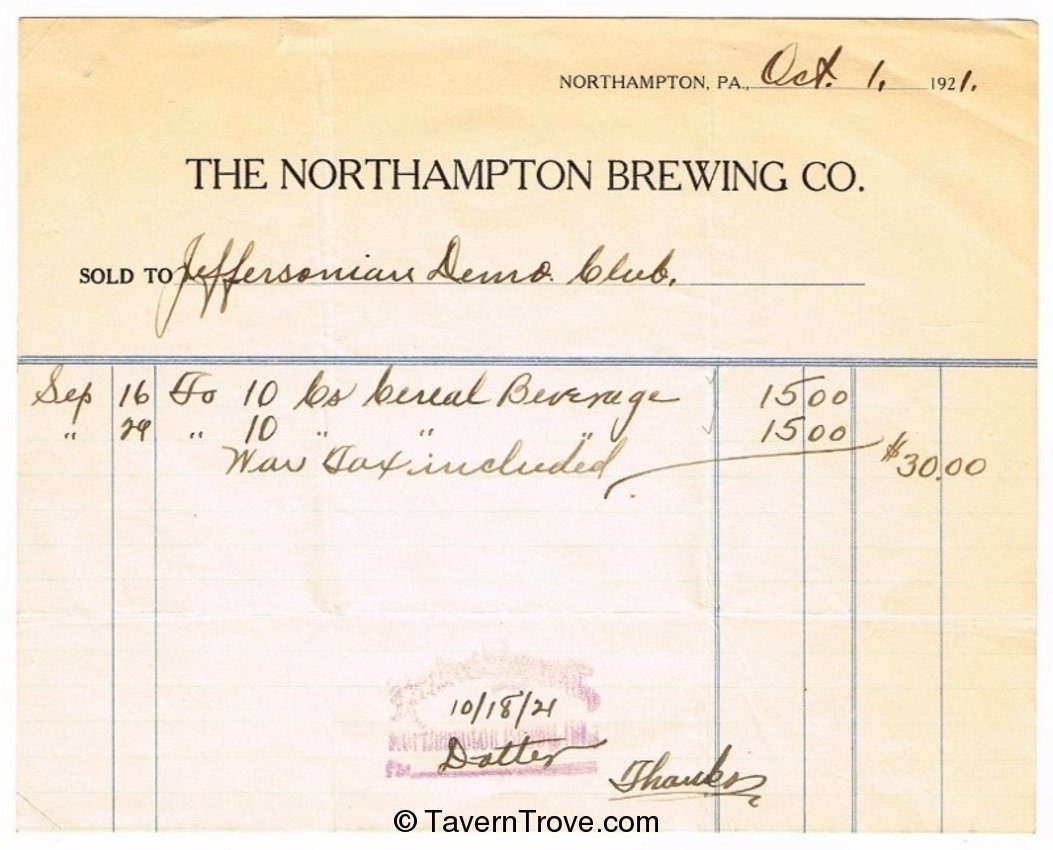 NORTHAMPTON, PA., Oct. 1, 1921.
THE NORTHAMPTON BREWING CO.
SOLD TO Jeffersonian Demo. Club.
Sep 16 To 10 Cs Cereal Beverage 15 00
" 29 " 10 " " " 15 00
War Tax included $30.00
10/18/21
NORTHAMPTON BREWING CO.
Per Dotter
Thanks
© TavernTrove.com